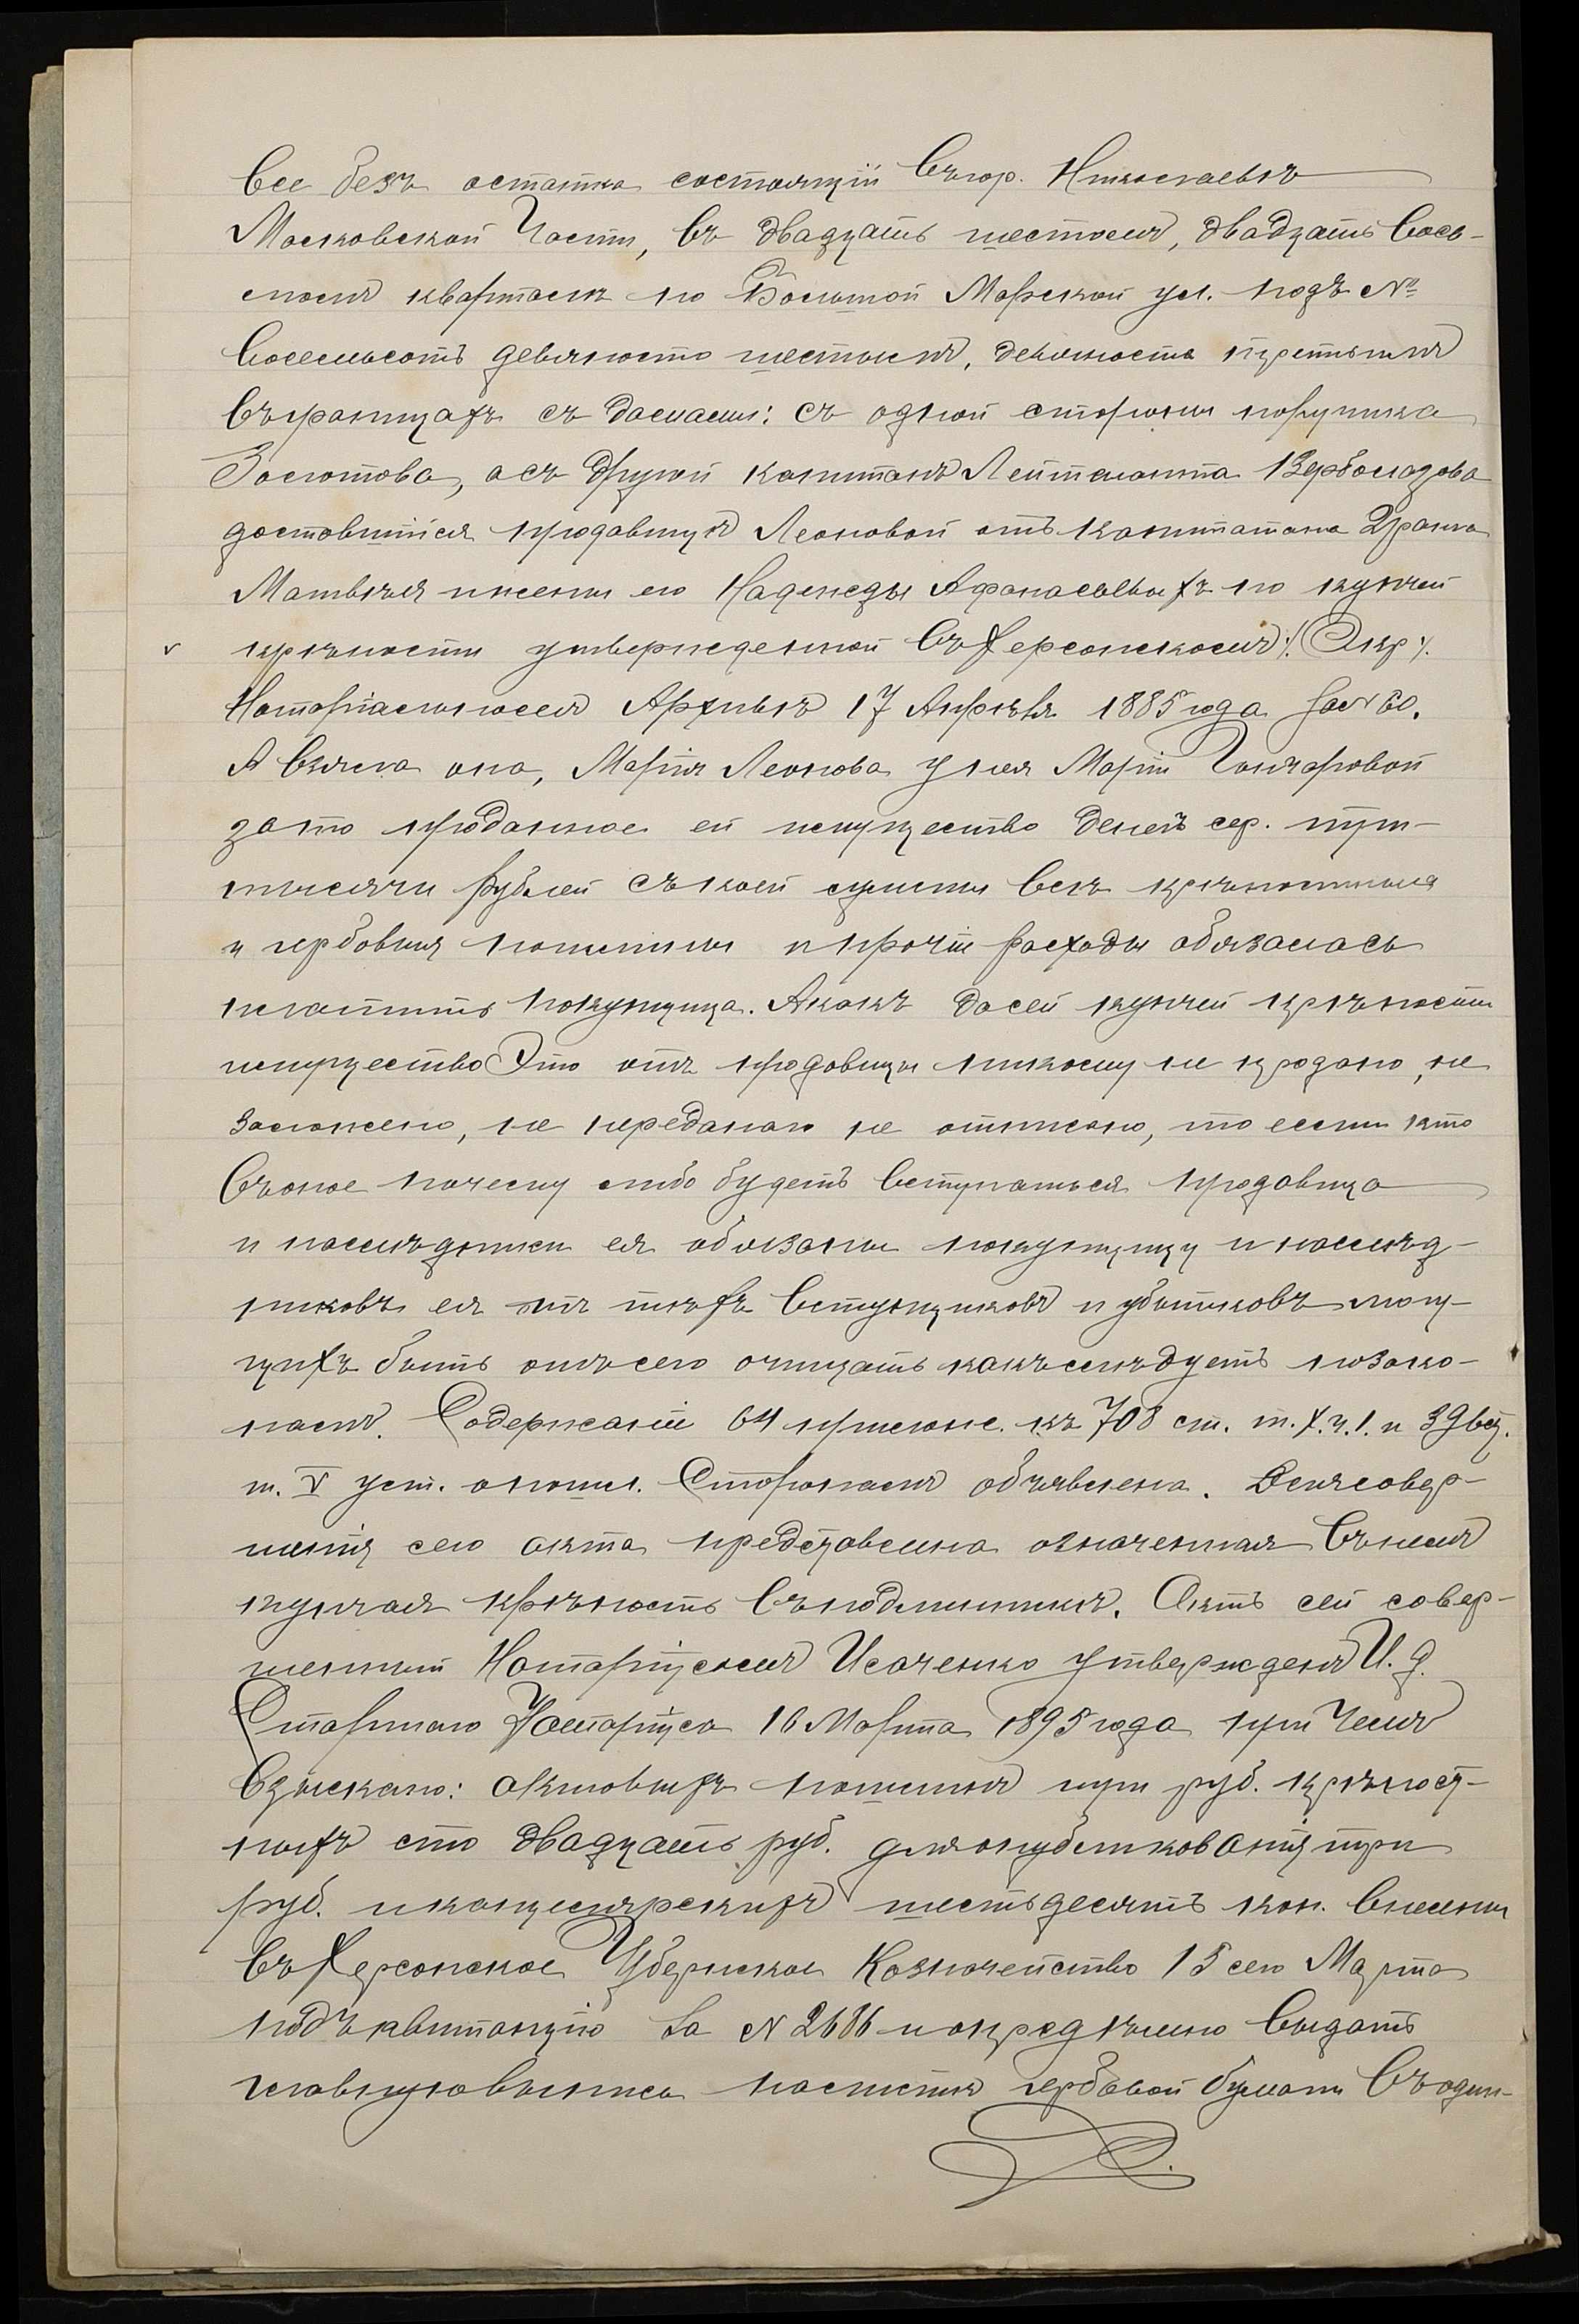 все безъ остатка состоящiй въ гор. Николаевѣ
Московской Части, въ двадцать шестомъ, двадцать вось-
момъ кварталѣ по Большой Морской ул. подъ №
восемьсотъ девяносто шестымъ, девяносто третьимъ
въ границахъ съ домами: съ одной стороны поручика
Золотова, а съ другой капитанъ Лейтенанта
доставшiйся продавицѣ Леоновой отъ капитатана 2 ранга
Матвѣя и жены его Надежды Афанасьевыхъ по купчей
крѣпости утвержденной въ Херсонскомъ ٪ Окр ٪
Нотарiальномъ Архивѣ 17 Апрѣля 1885 года за № 60.
А взяла она, Марiя Леонова у нея Марiи Гончаровой
за то проданное ей имущество денегъ сер. три
тысячи рублей съ коей суммы всѣ крѣпостныя
и гербовыя пошлины и прочiе расходы обязалась
платить покупщица. А какъ до сей купчей крѣпости
имущество это отъ продавицы никому не продано, не
заложено, не передано не отписано, то если кто
въ оное почему либо будетъ вступаться продавица
и наслѣдники ея обязаны покупщицу и наслѣд-
никовъ ея отъ тѣхъ вступщиковъ и убытковъ могу-
щихъ быть отъ сего очищать какъ слѣдуетъ по зако-
намъ. Содержанiе 64 прилож. къ 708 ст. т. X. ч. 1. и 39
т. V уст. о пошл. Сторонамъ объявлена. Для совер-
шенiя сего акта представлена означенная въ немъ
купчая крѣпость въ подлинникѣ. Актъ сей совер-
шенный Нотарiусомъ Исаченко утвержденъ И. д.
Старшаго Нотарiуса 16 Марта 1895 года при чемъ
взыскано: актовыхъ пошлинъ три руб. крѣпост-
ныхъ сто двадцать руб. для опубликованiя три
руб. и канцелярскихъ шестьдесятъ коп. внесены
въ Херсонское Губернское Казначейство 15 сего Марта
подъ квитанцiю за № 2686 и опредѣлено выдать
главную выпись на листѣ гербовой бумаги въ один-